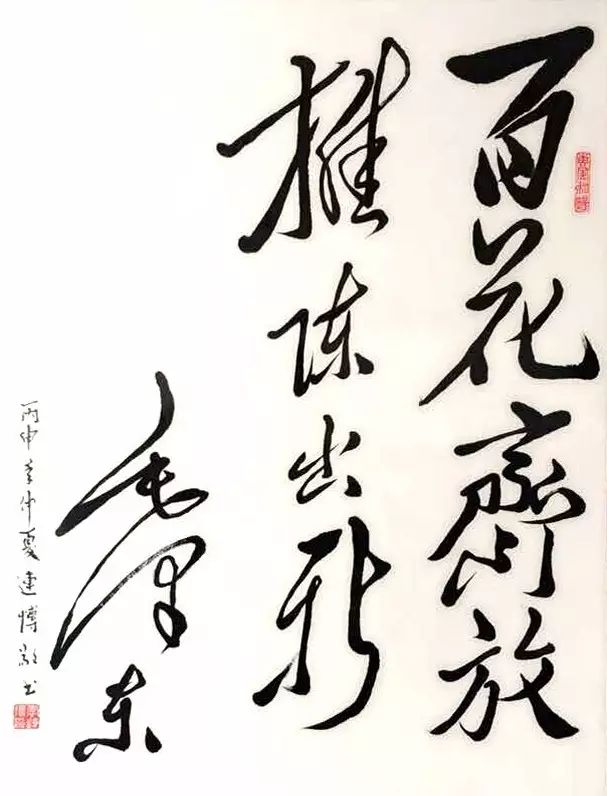 百花齊放
推陈出新
毛泽东
丙申年仲夏连博敬书